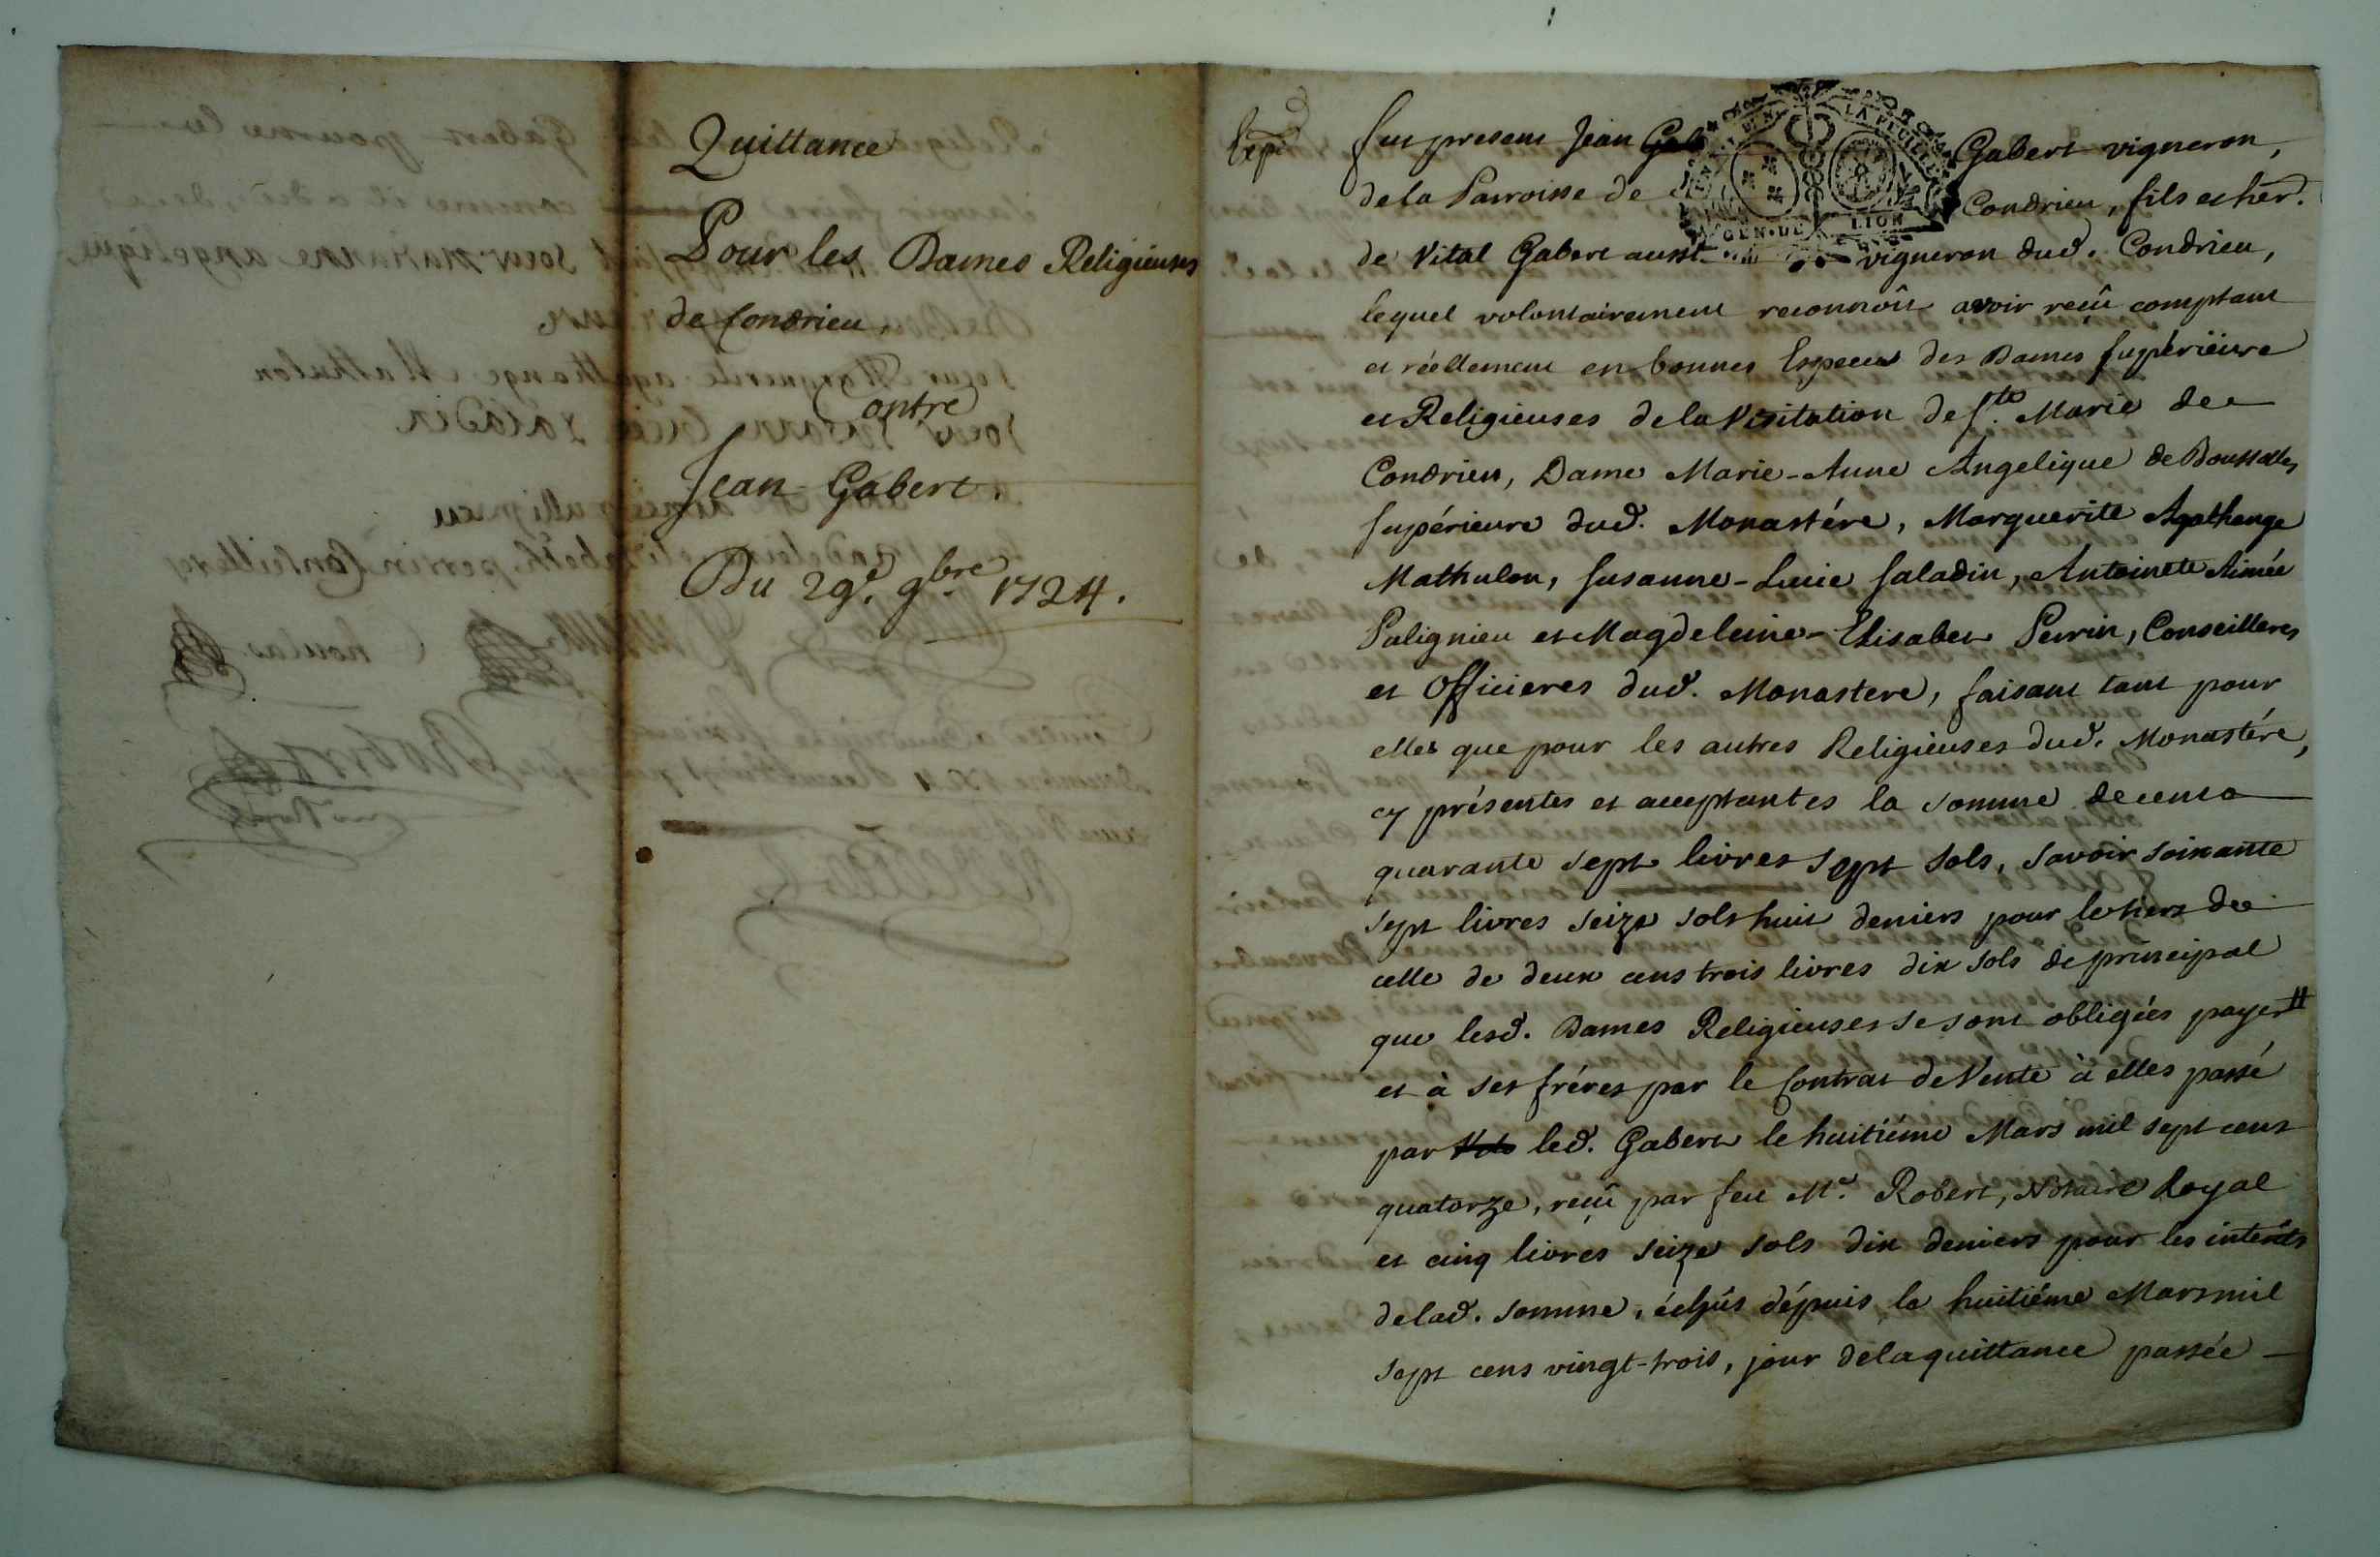 Quittance
Pour les Dames Religieuses
de Condrieu,
Contre
Jean Gabert.
Du 29.e 9.bre 1724.
Expé
Fut present Jean Gab Gabert vigneron,
de la Parroisse de Condrieu, fils et hér.
de Vital Gabert aussi vigneron dud. Condrieu,
lequel volontairement reconnoît avoir reçû comptant
et réellement en bonnes Especes des Dames Supérieure
et Religieuses de la Visitation de S.te Marie de
Condrieu, Dame Marie-Anne Angelique de Boussolles,
Supérieure dud. Monastére, Marguerite Agathange
Mathulon, Susanne-Lucie Saladin, Antoinete Aimée
Palignieu et Magdeleine-Elisabet Perrin, Conseilleres
et Officieres dud. Monastere, faisant tant pour
elles que pour les autres Religieuses dud. Monastére,
cy présentes et acceptantes la somme de cent
quarante sept livres sept sols, savoir soixante
sept livres seize sols huit deniers pour le tiers de
celle de deux cens trois livres dix sols de principal
que lesd. Dames Religieuses se sont obligées payer #
et à ses fréres par le Contrat de Vente à elles passé
par led. Gabert le huitiéme Mars mil sept cens
quatorze, reçû par feu M.e Robert, Notaire Royal
et cinq livres seize sols dix deniers pour les interêts
de lad. somme, échûs dépuis le huitiéme Mars mil
sept cens vingt-trois, jour de la quittance passée
GEN. DE LION